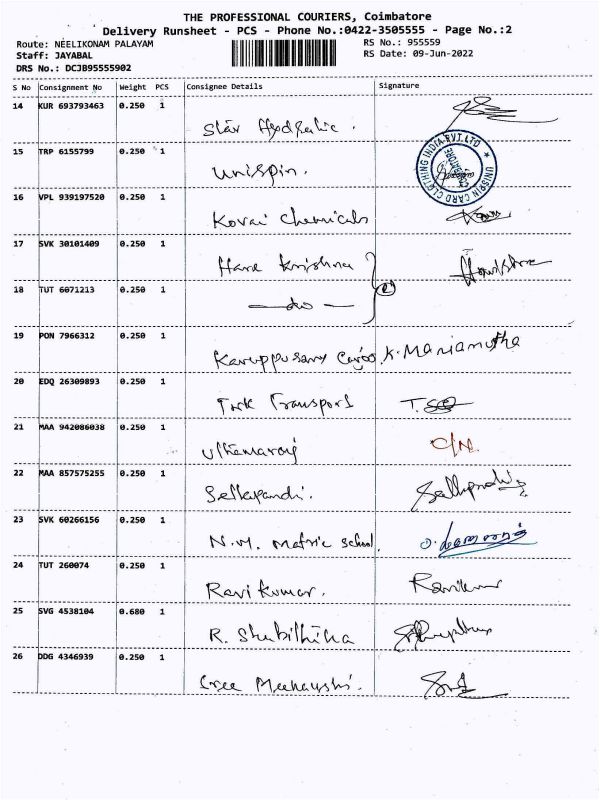 THE PROFESSIONAL COURIERS, Coimbatore
Delivery Runsheet - PCS - Phone No.:0422-3505555 - Page No.:2
Route: NEELIKONAM PALAYAM
RS No.: 955559
Staff: JAYABAL
RS Date: 09-Jun-2022
DRS No.: DCJB95555902
S No Consignment No Weight PCS Consignee Details Signature
14 KUR 693793463 0.250 1
Star Hydraulic.
15 TRP 6155799 0.250 1
Unispin.
UNISPIN CARD CLOTHING INDIA PVT. LTD
16 VPL 939197520 0.250 1
Kovai Chemicals
17 SVK 30101409 0.250 1
Hare Krishna
18 TUT 6071213 0.250 1
— do —
19 PON 7966312 0.250 1
Karuppusamy K. Mariamutha
20 EDQ 26309893 0.250 1
Transport
21 MAA 942086038 0.250 1
Uthamaraj C/N.
22 MAA 857575255 0.250 1
Sellapandi.
23 SVK 60266156 0.250 1
N.M. Matric School.
24 TUT 260074 0.250 1
Ravi Kumar. Ravikumar
25 SVG 4538104 0.680 1
R.
26 DDG 4346939 0.250 1
Sree Meenakshi.